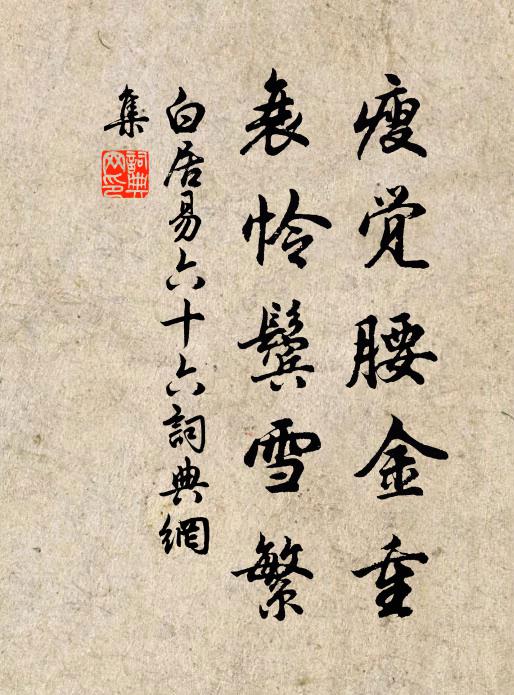 瘦觉腰金重
衰怜鬓雪繁
白居易六十六詞典網
集
詞典
网印